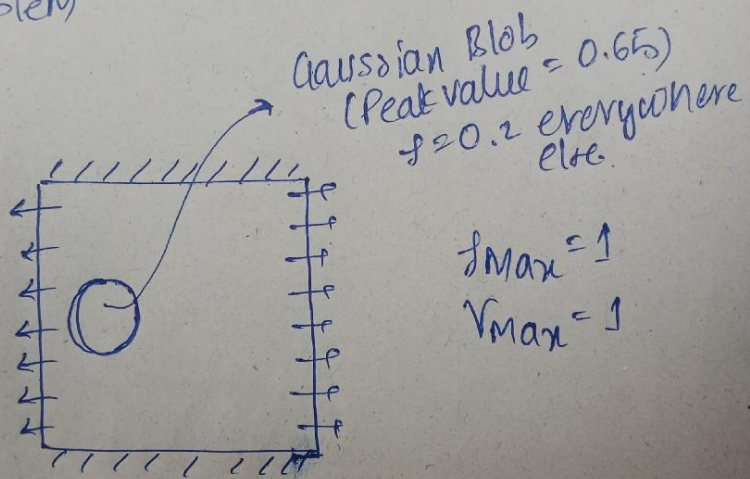 Gaussian Blob
(Peak value = 0.65)
f=0.2 everywhere
else.
fMax = 1
VMax = 1